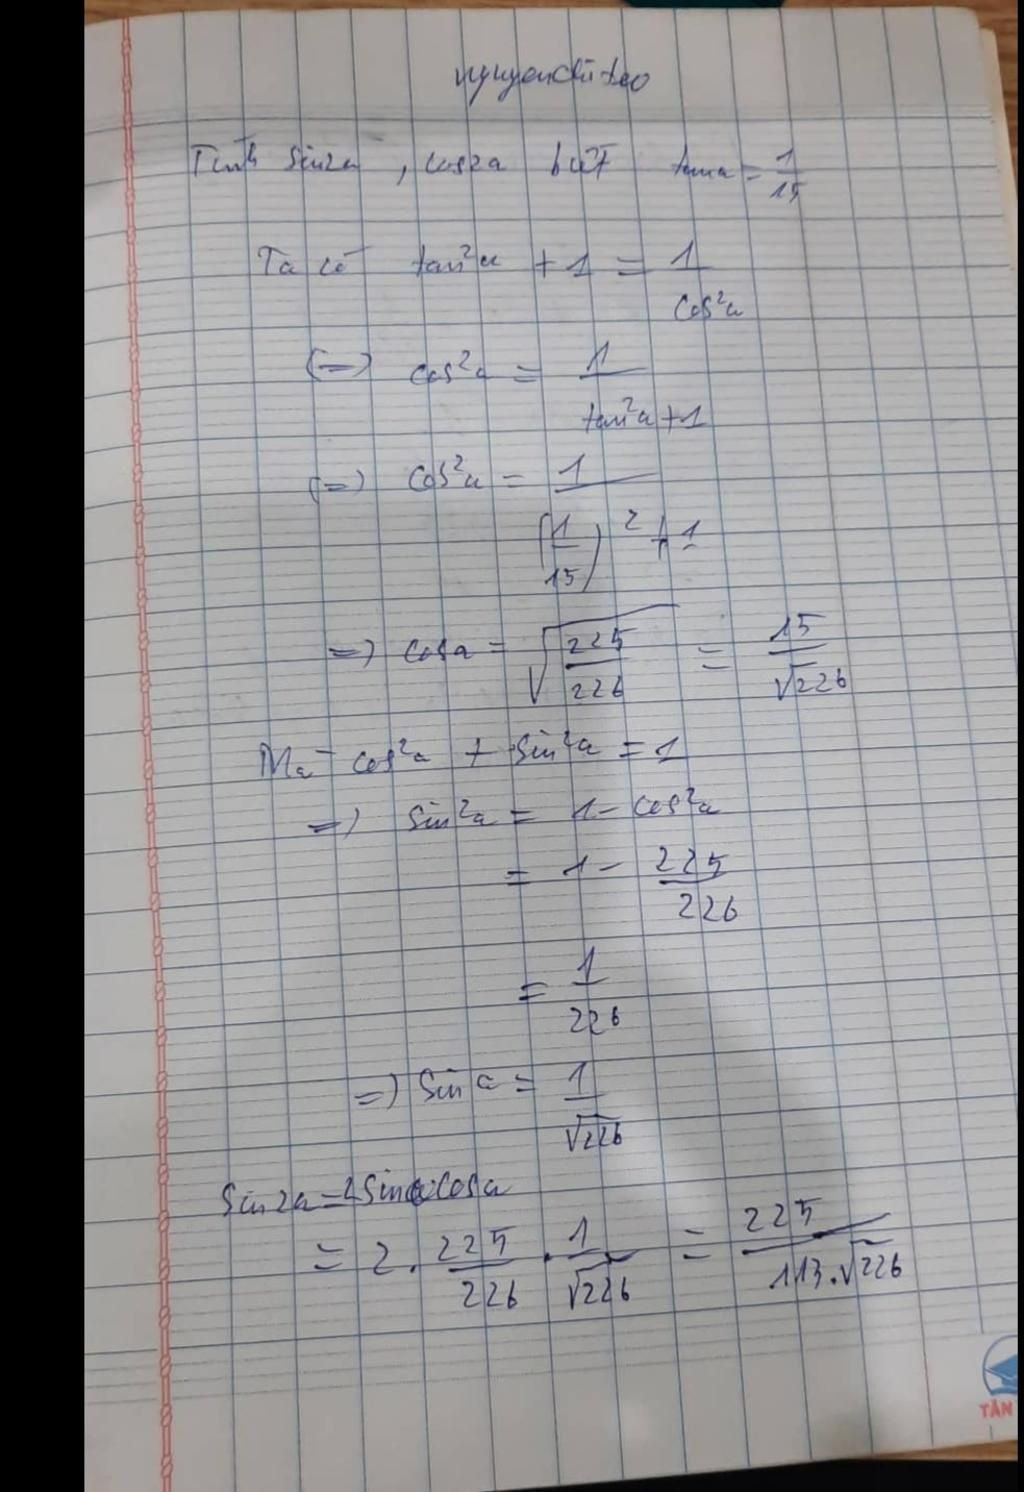 nguyenchi teo
Tính sin2a, cos2a biết tana = 1/15
Ta có tan²a + 1 = 1/cos²a
(=) cos²a = 1/(tan²a + 1)
(=) cos²a = 1/((1/15)² + 1)
=) cosa = √(225/226) = 15/√226
Mà cos²a + sin²a = 1
=) sin²a = 1 - cos²a
= 1 - 225/226
= 1/226
=) sin a = 1/√226
Sin2a = 2Sina.cosa
= 2. 225/226 . 1/√226 = 225/(113.√226)
TÂN